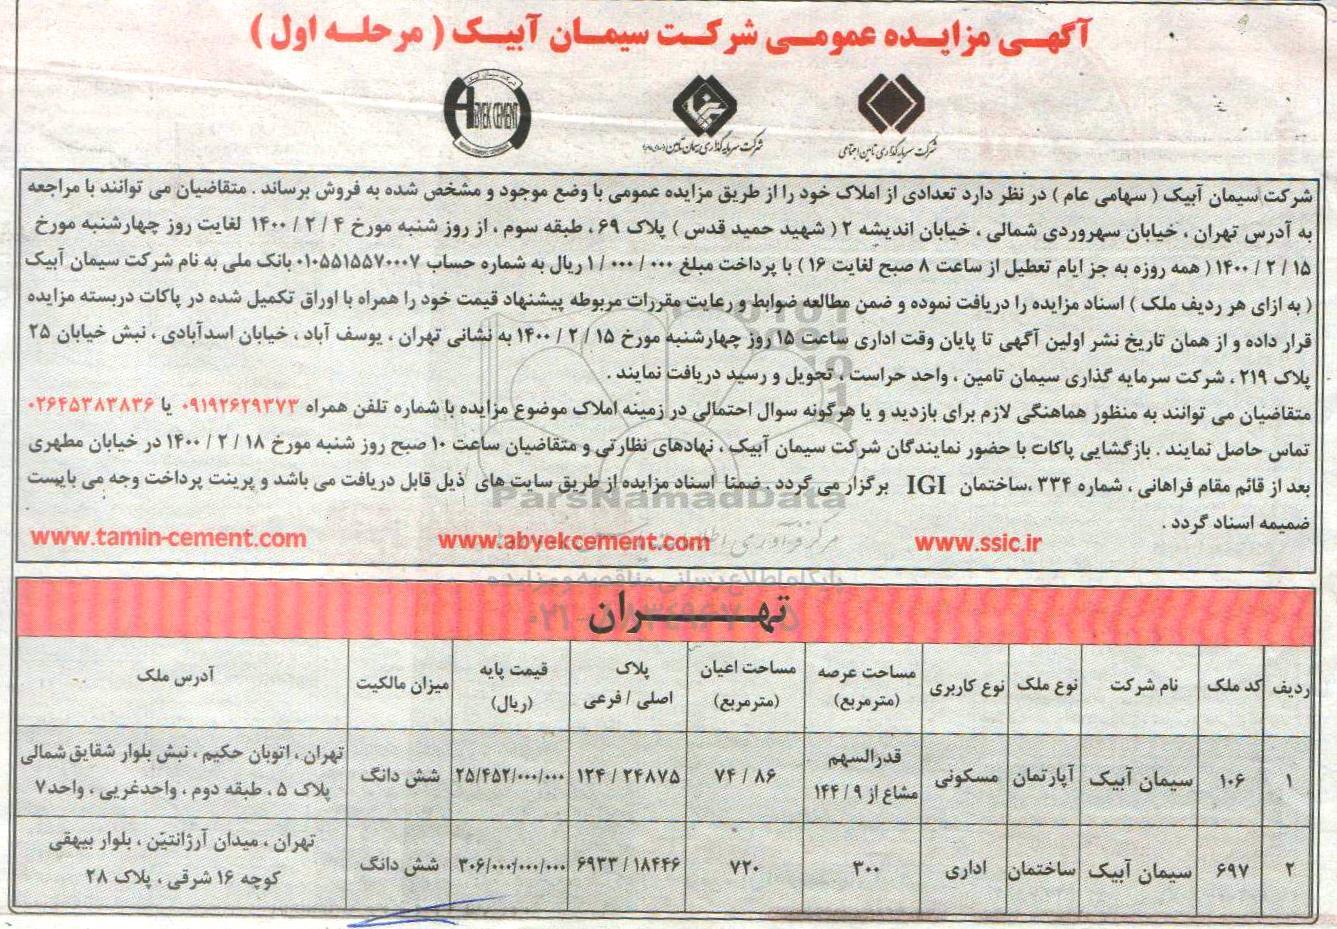 آگهی مزایده عمومی شرکت سیمان آبیک ( مرحله اول )
شرکت سرمایه گذاری تامین اجتماعی
شرکت سرمایه گذاری سیمان تامین
ABYEK CEMENT
شرکت سیمان آبیک ( سهامی عام ) در نظر دارد تعدادی از املاک خود را از طریق مزایده عمومی با وضع موجود و مشخص شده به فروش برساند . متقاضیان می توانند با مراجعه
به آدرس تهران ، خیابان سهروردی شمالی ، خیابان اندیشه ۲ ( شهید حمید قدس ) پلاک ۶۹ ، طبقه سوم ، از روز شنبه مورخ ۴ / ۲ / ۱۴۰۰ لغایت روز چهارشنبه مورخ
۱۵ / ۲ / ۱۴۰۰ ( همه روزه به جز ایام تعطیل از ساعت ۸ صبح لغایت ۱۶ ) با پرداخت مبلغ ۰۰۰ / ۰۰۰ / ۱ ریال به شماره حساب ۰۱۰۵۵۱۵۵۷۰۰۰۷ بانک ملی به نام شرکت سیمان آبیک
( به ازای هر ردیف ملک ) اسناد مزایده را دریافت نموده و ضمن مطالعه ضوابط و رعایت مقررات مربوطه پیشنهاد قیمت خود را همراه با اوراق تکمیل شده در پاکات دربسته مزایده
قرار داده و از همان تاریخ نشر اولین آگهی تا پایان وقت اداری ساعت ۱۵ روز چهارشنبه مورخ ۱۵ / ۲ / ۱۴۰۰ به نشانی تهران ، یوسف آباد ، خیابان اسدآبادی ، نبش خیابان ۲۵
پلاک ۲۱۹ ، شرکت سرمایه گذاری سیمان تامین ، واحد حراست ، تحویل و رسید دریافت نمایند .
متقاضیان می توانند به منظور هماهنگی لازم برای بازدید و یا هرگونه سوال احتمالی در زمینه املاک موضوع مزایده با شماره تلفن همراه ۰۹۱۹۲۶۲۹۳۷۳ یا ۰۲۶۴۵۳۸۳۸۳۶
تماس حاصل نمایند . بازگشایی پاکات با حضور نمایندگان شرکت سیمان آبیک ، نهادهای نظارتی و متقاضیان ساعت ۱۰ صبح روز شنبه مورخ ۱۸ / ۲ / ۱۴۰۰ در خیابان مطهری
بعد از قائم مقام فراهانی ، شماره ۳۳۴ ،ساختمان IGI برگزار می گردد . ضمنا اسناد مزایده از طریق سایت های ذیل قابل دریافت می باشد و پرینت پرداخت وجه می بایست
ضمیمه اسناد گردد .
www.ssic.ir www.abyekcement.com www.tamin-cement.com
ParsNamadData
پایگاه اطلاع رسانی مناقصه و مزایده
تهران
ردیف | کد ملک | نام شرکت | نوع ملک | نوع کاربری | مساحت عرصه (مترمربع) | مساحت اعیان (مترمربع) | پلاک اصلی / فرعی | قیمت پایه (ریال) | میزان مالکیت | آدرس ملک
۱ | ۱۰۶ | سیمان آبیک | آپارتمان | مسکونی | قدرالسهم مشاع از ۹ / ۱۴۴ | ۸۶ / ۷۴ | ۲۴۸۷۵ / ۱۲۴ | ۲۵/۴۵۲/۰۰۰/۰۰۰ | شش دانگ | تهران ، اتوبان حکیم ، نبش بلوار شقایق شمالی پلاک ۵ ، طبقه دوم ، واحدغربی ، واحد۷
۲ | ۶۹۷ | سیمان آبیک | ساختمان | اداری | ۳۰۰ | ۷۲۰ | ۱۸۴۴۶ / ۶۹۳۳ | ۳۰۶/۰۰۰/۰۰۰/۰۰۰ | شش دانگ | تهران ، میدان آرژانتین ، بلوار بیهقی کوچه ۱۶ شرقی ، پلاک ۲۸